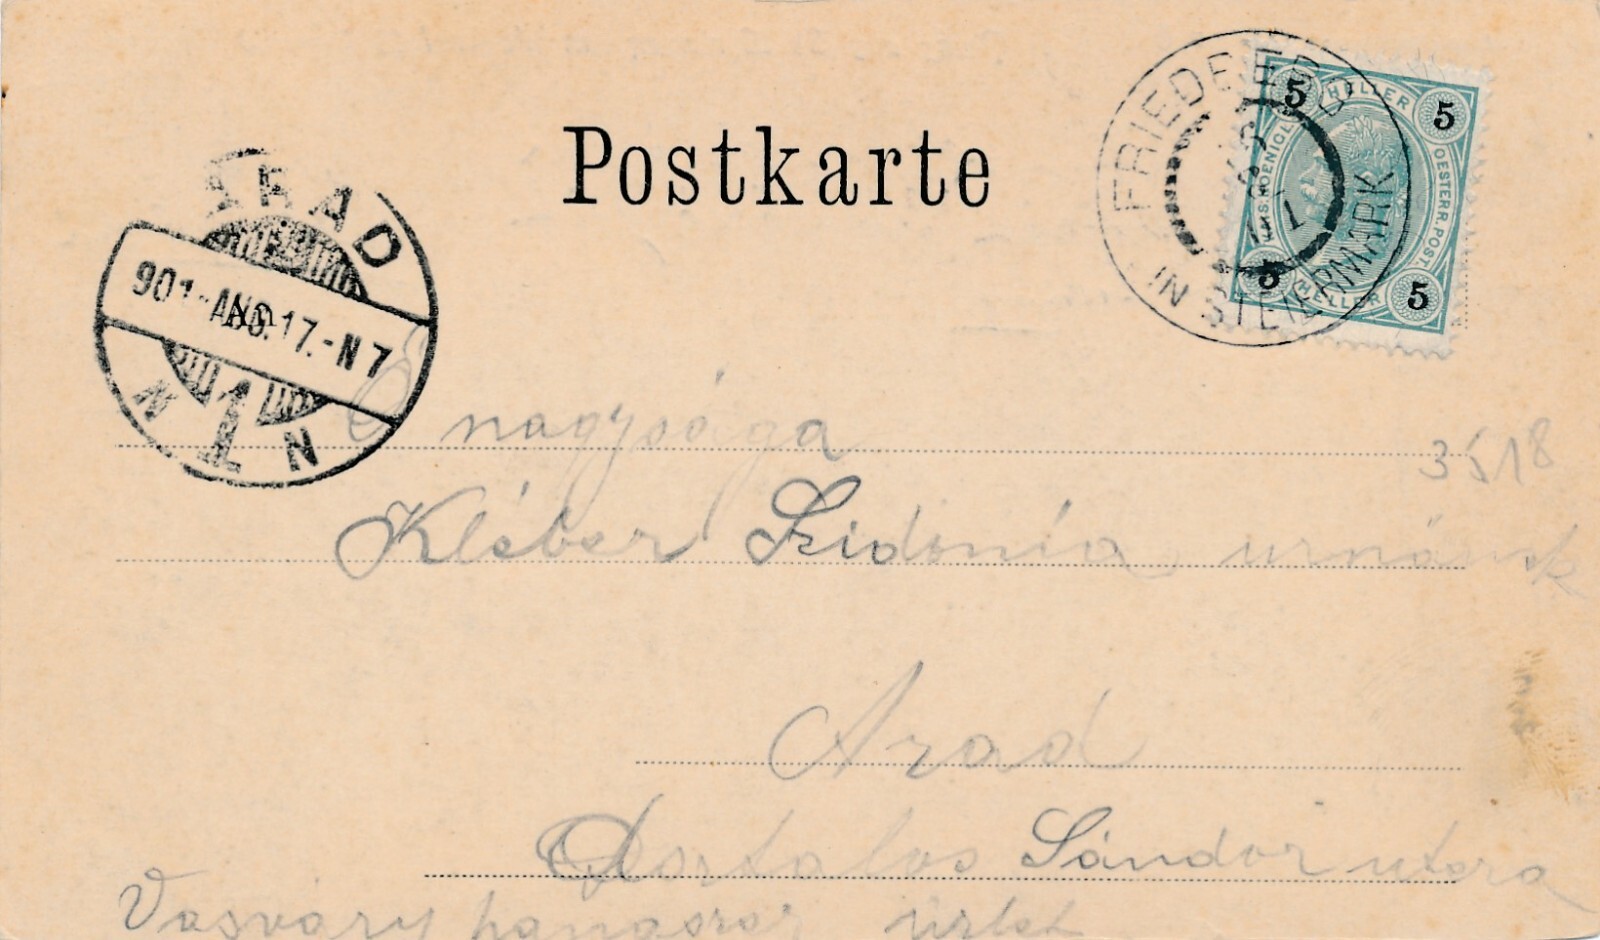 Postkarte
FRIEDBERG
IN STEIERMARK
5 HELLER 5
OESTERR. POST
5 HELLER 5
ARAD
901 AUG. 17. - N 7
N 1 N
Ő nagysága
3518
Kléber Szidónia urnának
Arad
Sándor utcza
Vasváry
üzlet